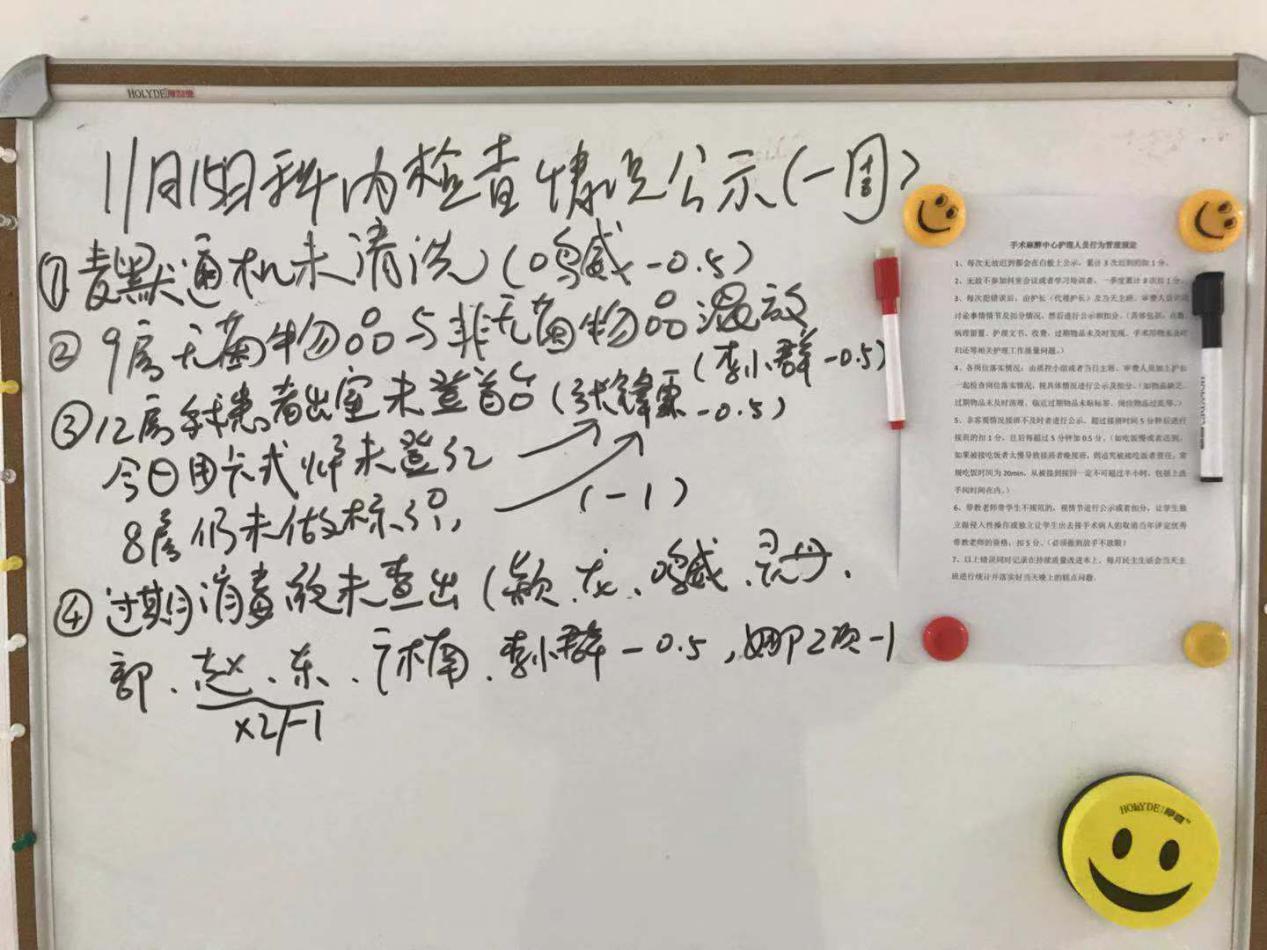 HOLYDE
11月15日科内检查情况公示(一周)
①麦默通机未清洗(鸣威-0.5)
②9房无菌物品与非无菌物品混放
(李小群-0.5)
③12房手术患者出室未登首台(张锋雲-0.5)
今日用卡式炉未登记
8房仍未做标识, (-1)
④过期消毒液未查出(颖、龙、鸣威、灵丹、
部、赵、东、林楠、李小群-0.5,娜2项-1
x2/-1
手术麻醉中心护理人员行为管理规定
1、每次无故迟到都会在白板上公示,累计3次迟到的扣1分。
2、无故不参加科室会议或者学习培训者,一季度累计3次扣1分。
3、每次犯错误后,由护长(代理护长)及当天主班、审费人员
讨论事情情节及扣分情况,然后进行公示和扣分。(具体包括:点数、
病理留置、护理文书、收费、过期物品未及时发现、手术用物未及时
归还等相关护理工作质量问题。)
4、各岗位落实情况:由质控小组或者当日主班、审费人员加上护长
一起检查岗位落实情况,视具体情况进行公示及扣分。(如物品缺乏、
过期物品未及时清理、临近过期物品未贴标签、岗位物品过乱等。)
5、非客观情况接班不及时者进行公示,超过接班时间5分钟后进行
接班的扣1分,且后每超过5分钟加0.5分。(如吃饭慢或者迟到,
如果被接吃饭者太慢导致接班者晚接班,则追究被接吃饭者责任;常
规吃饭时间为20min,从被接到接回一定不可超过半小时,包括上洗
手间时间在内。)
6、带教老师带学生不规范的,视情节进行公示或者扣分,让学生独
立做侵入性操作或独立让学生出去接手术病人的取消当年评定优秀
带教老师的资格,扣5分。(必须做到放手不放眼)
7、以上错误同时记录在持续质量改进本上,每月民主生活会当天主
班进行统计并落实好当天晚上的糕点问题.
HOLYDE